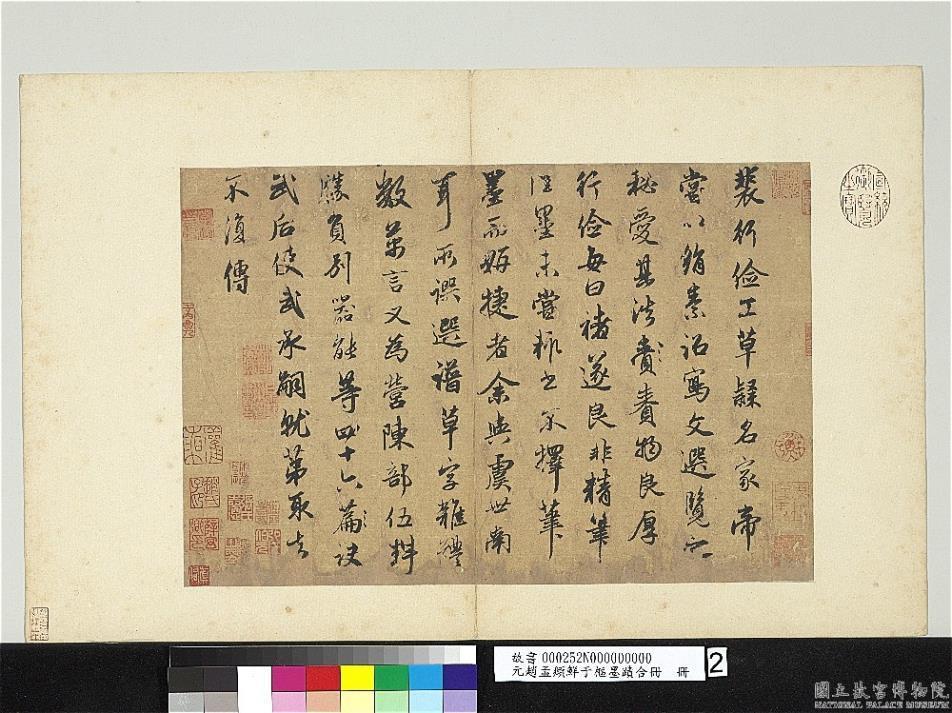 裴行儉工草隸名家帝
嘗以絹素詔寫文選覽之
秘愛其法賚賚物良厚
行儉每曰褚遂良非精筆
佳墨未嘗輒書不擇筆
墨而妍捷者余與虞世南
耳所譔選譜草字雜體
數萬言又為營陳部伍料
勝負別器能等四十六篇訣
武后使武承嗣就第取去
不復傳
故書 000252N000000000
元趙孟頫鮮于樞墨蹟合冊 冊
2
國立故宮博物院
NATIONAL PALACE MUSEUM